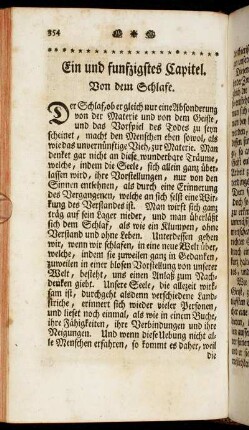 354
Ein und funfzigstes Capitel.
Von dem Schlafe.
Der Schlaf, ob er gleich nur eine Absonderung
von der Materie und von dem Geiste,
und das Vorspiel des Todes zu seyn
scheinet, macht den Menschen eben sowol, als
wie das unvernünftige Vieh, zur Materie. Man
denket gar nicht an diese wunderbare Träume,
welche, indem die Seele, sich allein ganz über-
lassen wird, ihre Vorstellungen, nur von den
Sinnen entlehnen, als durch eine Erinnerung
des Vergangenen, welche an sich selbst eine Wir-
kung des Verstandes ist. Man wirft sich ganz
träg auf sein Lager nieder, und man überläßt
sich dem Schlaf, als wie ein Klumpen, ohne
Verstand und ohne Leben. Unterdessen gehen
wir, wenn wir schlafen, in eine neue Welt über,
welche, indem sie zuweilen ganz in Gedanken,
zuweilen in einer blosen Vorstellung von unserer
Welt, besteht, uns einen Anlaß zum Nach-
denken giebt. Unsere Seele, die allezeit wirk-
sam ist, durchgeht alsdenn verschiedene Land-
striche, erinnert sich wieder vieler Personen,
und lieset noch einmal, als wie in einem Buche,
ihre Fähigkeiten, ihre Verbindungen und ihre
Neigungen. Und wenn diese Uebung nicht al-
le Menschen erfahren, so kommt es daher, weil
die